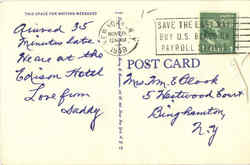 THIS SPACE FOR WRITING MESSAGES
Arrived 35
Minutes late.
We are at the
Edison Hotel
Love from
Daddy
NEW YORK, N.Y.
SAVE THE EASY WAY
BUY U.S. BONDS ON
PAYROLL
POST CARD
Mrs. Wm E Clook
5 Westwood Court
Binghamton,
N.Y